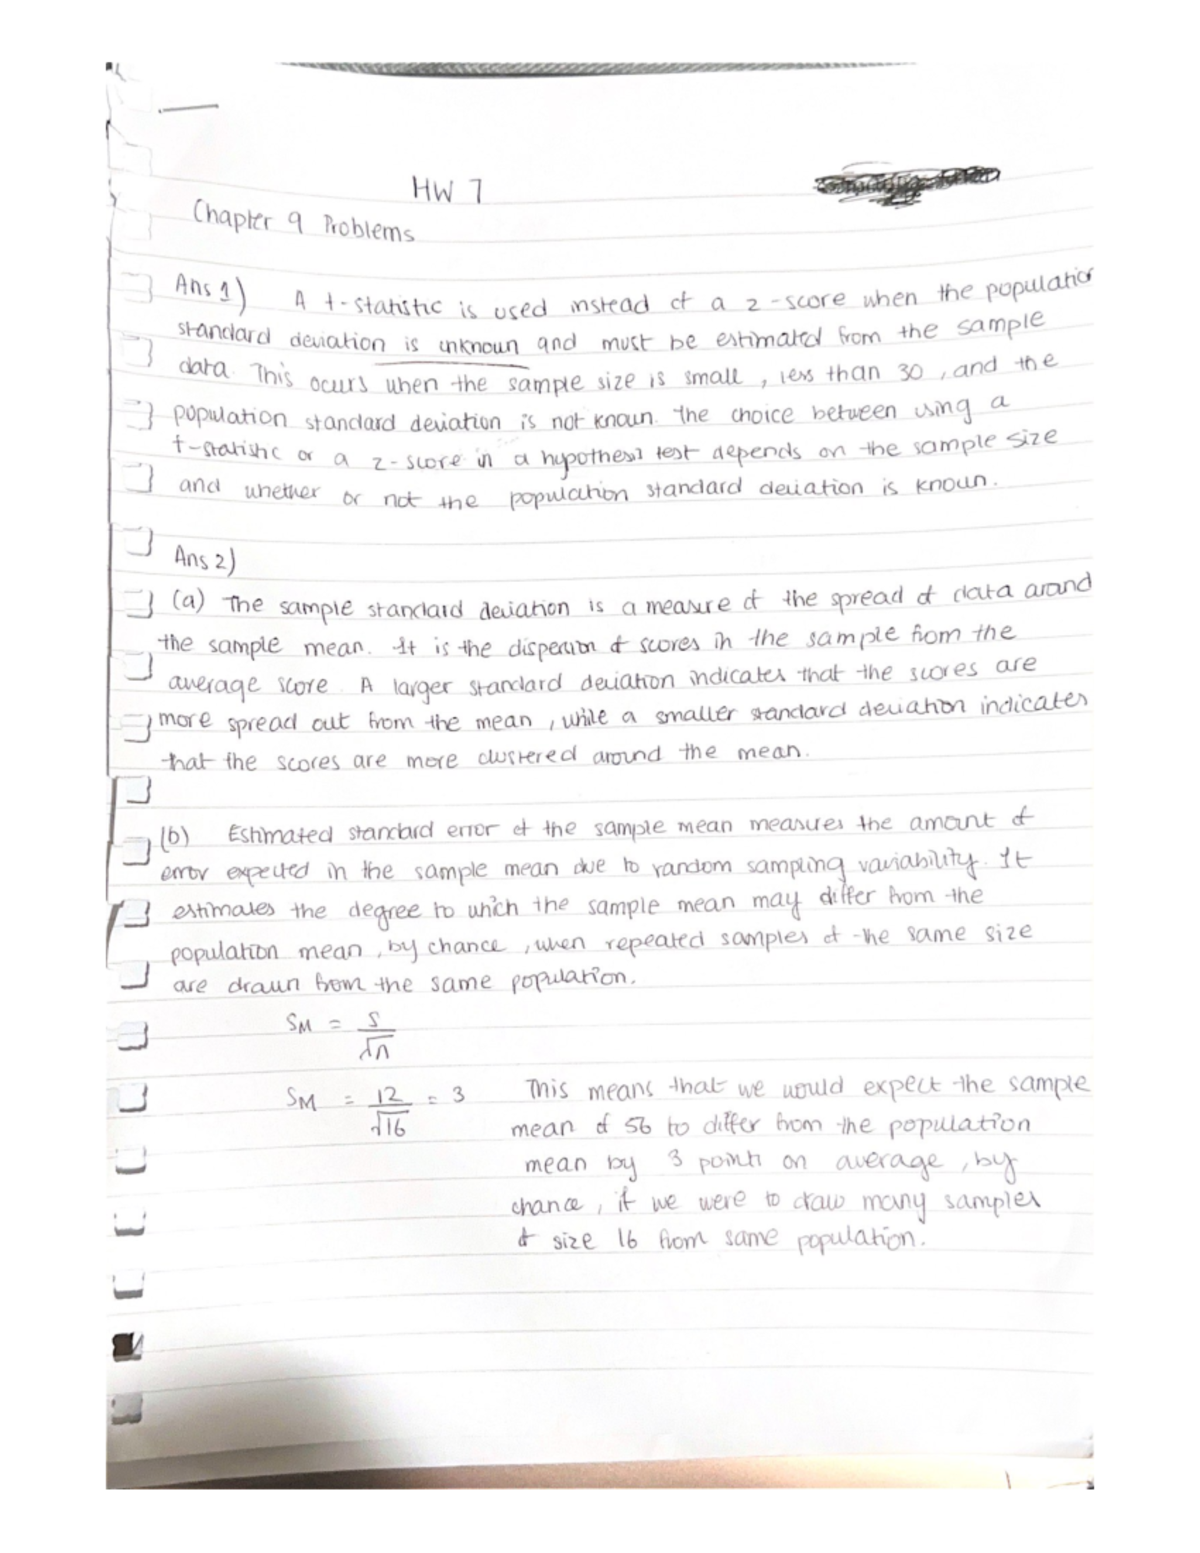 HW 7
Chapter 9 Problems
Ans 1) A t-statistic is used instead of a z-score when the population
standard deviation is unknown and must be estimated from the sample
data. This ocurs when the sample size is small, less than 30, and the
population standard deviation is not known. The choice between using a
t-statistic or a z-score in a hypothesis test depends on the sample size
and whether or not the population standard deviation is known.
Ans 2)
(a) The sample standard deviation is a measure of the spread of data around
the sample mean. It is the dispersion of scores in the sample from the
average score. A larger standard deviation indicates that the scores are
more spread out from the mean, while a smaller standard deviation indicates
that the scores are more clustered around the mean.
(b) Estimated standard error of the sample mean measures the amount of
error expected in the sample mean due to random sampling variability. It
estimates the degree to which the sample mean may differ from the
population mean, by chance, when repeated samples of the same size
are drawn from the same population.
SM = s/√n
SM = 12/√16 = 3 This means that we would expect the sample
mean of 56 to differ from the population
mean by 3 points on average, by
chance, if we were to draw many samples
of size 16 from same population.